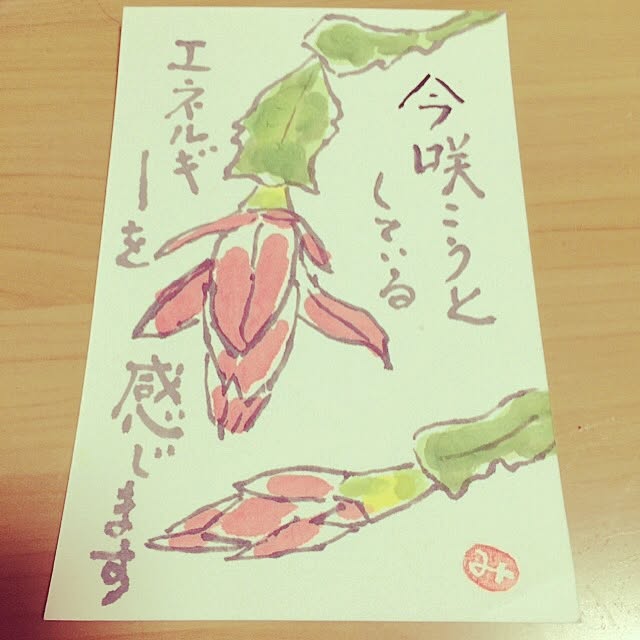 今咲こうと
している
エネルギーを
感じます
み